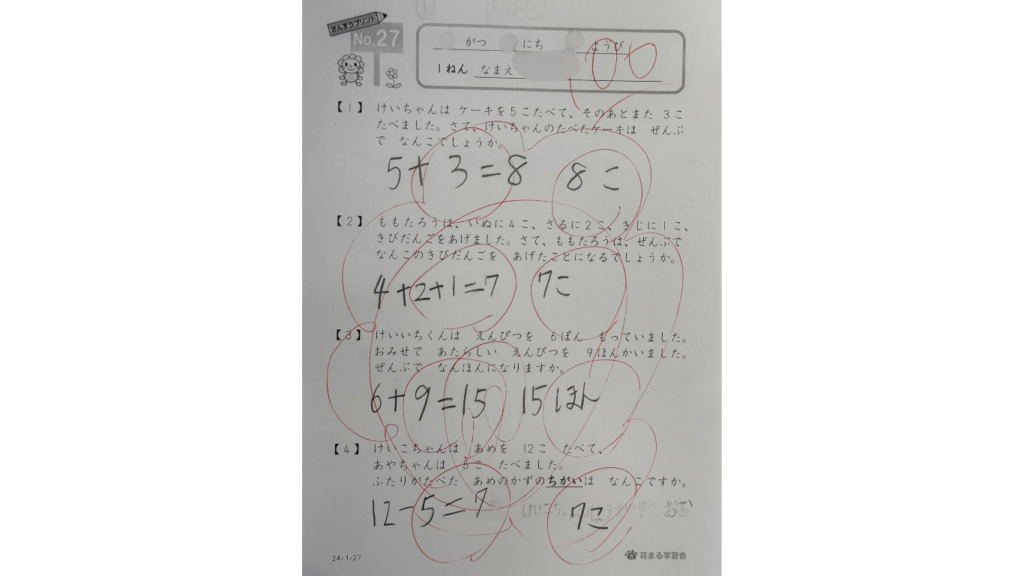 さんすうプリント
No.27
がつ にち ようび
1ねん なまえ
100
【1】 けいちゃんは ケーキを5こたべて、そのあとまた 3こ
たべました。さて、けいちゃんのたべたケーキは ぜんぶ
で なんこでしょうか。
5+3=8 8こ
【2】 ももたろうは、いぬに4こ、さるに2こ、きじに1こ、
きびだんごをあげました。さて、ももたろうは、ぜんぶで
なんこのきびだんごを あげたことになるでしょうか。
4+2+1=7 7こ
【3】 けいいちくんは えんぴつを 6ぽん もっていました。
おみせで あたらしい えんぴつを 9ほんかいました。
ぜんぶで なんほんになりますか。
6+9=15 15ほん
【4】 けいこちゃんは あめを 12こ たべて、
あやちゃんは 5こ たべました。
ふたりがたべた あめのかずのちがいは なんこですか。
12-5=7 7こ
24-1-27
花まる学習会